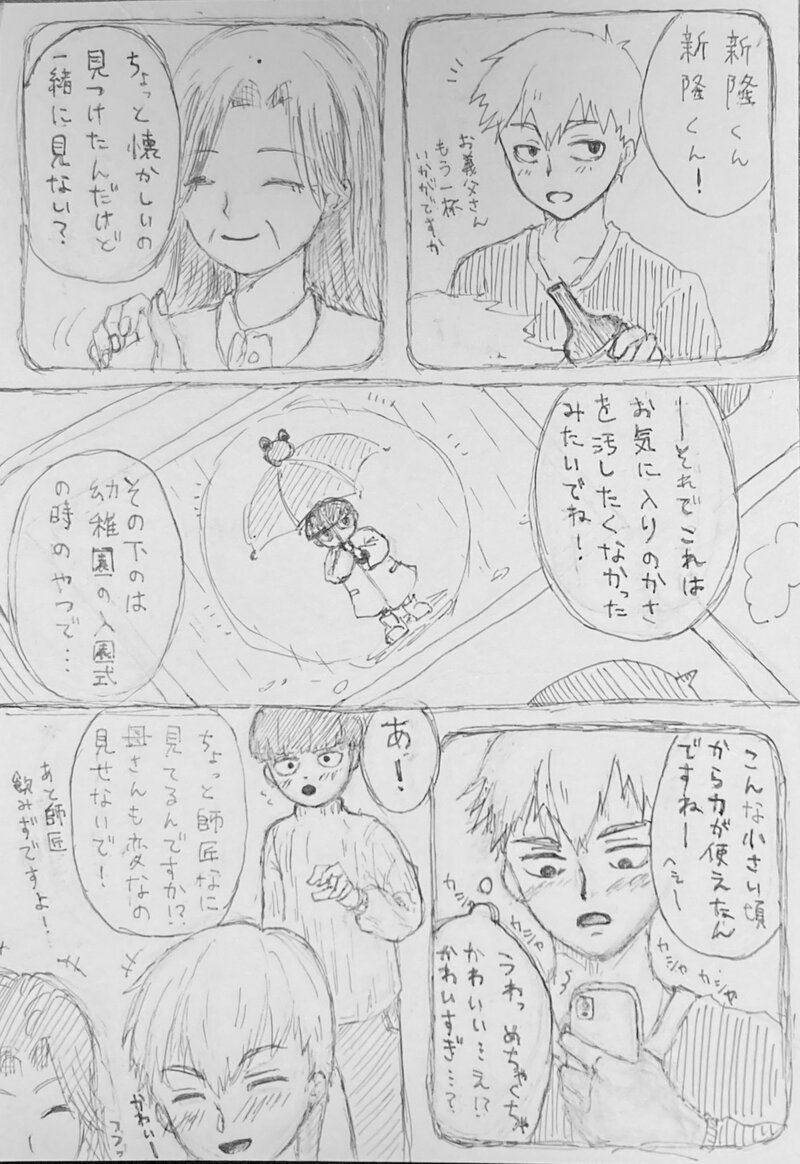 新隆くん
新隆くん！
お義父さん
もう一杯
いかがですか
ちょっと懐かしいの
見つけたんだけど
一緒に見ない？
―それでこれは
お気に入りのかさ
を汚したくなかった
みたいでね！
その下のは
幼稚園の入園式
の時のやつで…
こんな小さい頃
から力が使えたん
ですねー
へぇー
カシャ
カシャ
カシャ カシャ
うわっ めちゃくちゃ
かわいい…え!?
かわいすぎ…？
あ！
ちょっと師匠なに
見てるんですか!?
母さんも変なの
見せないで！
あと師匠
飲みすぎですよ！
かわいー
フフッ